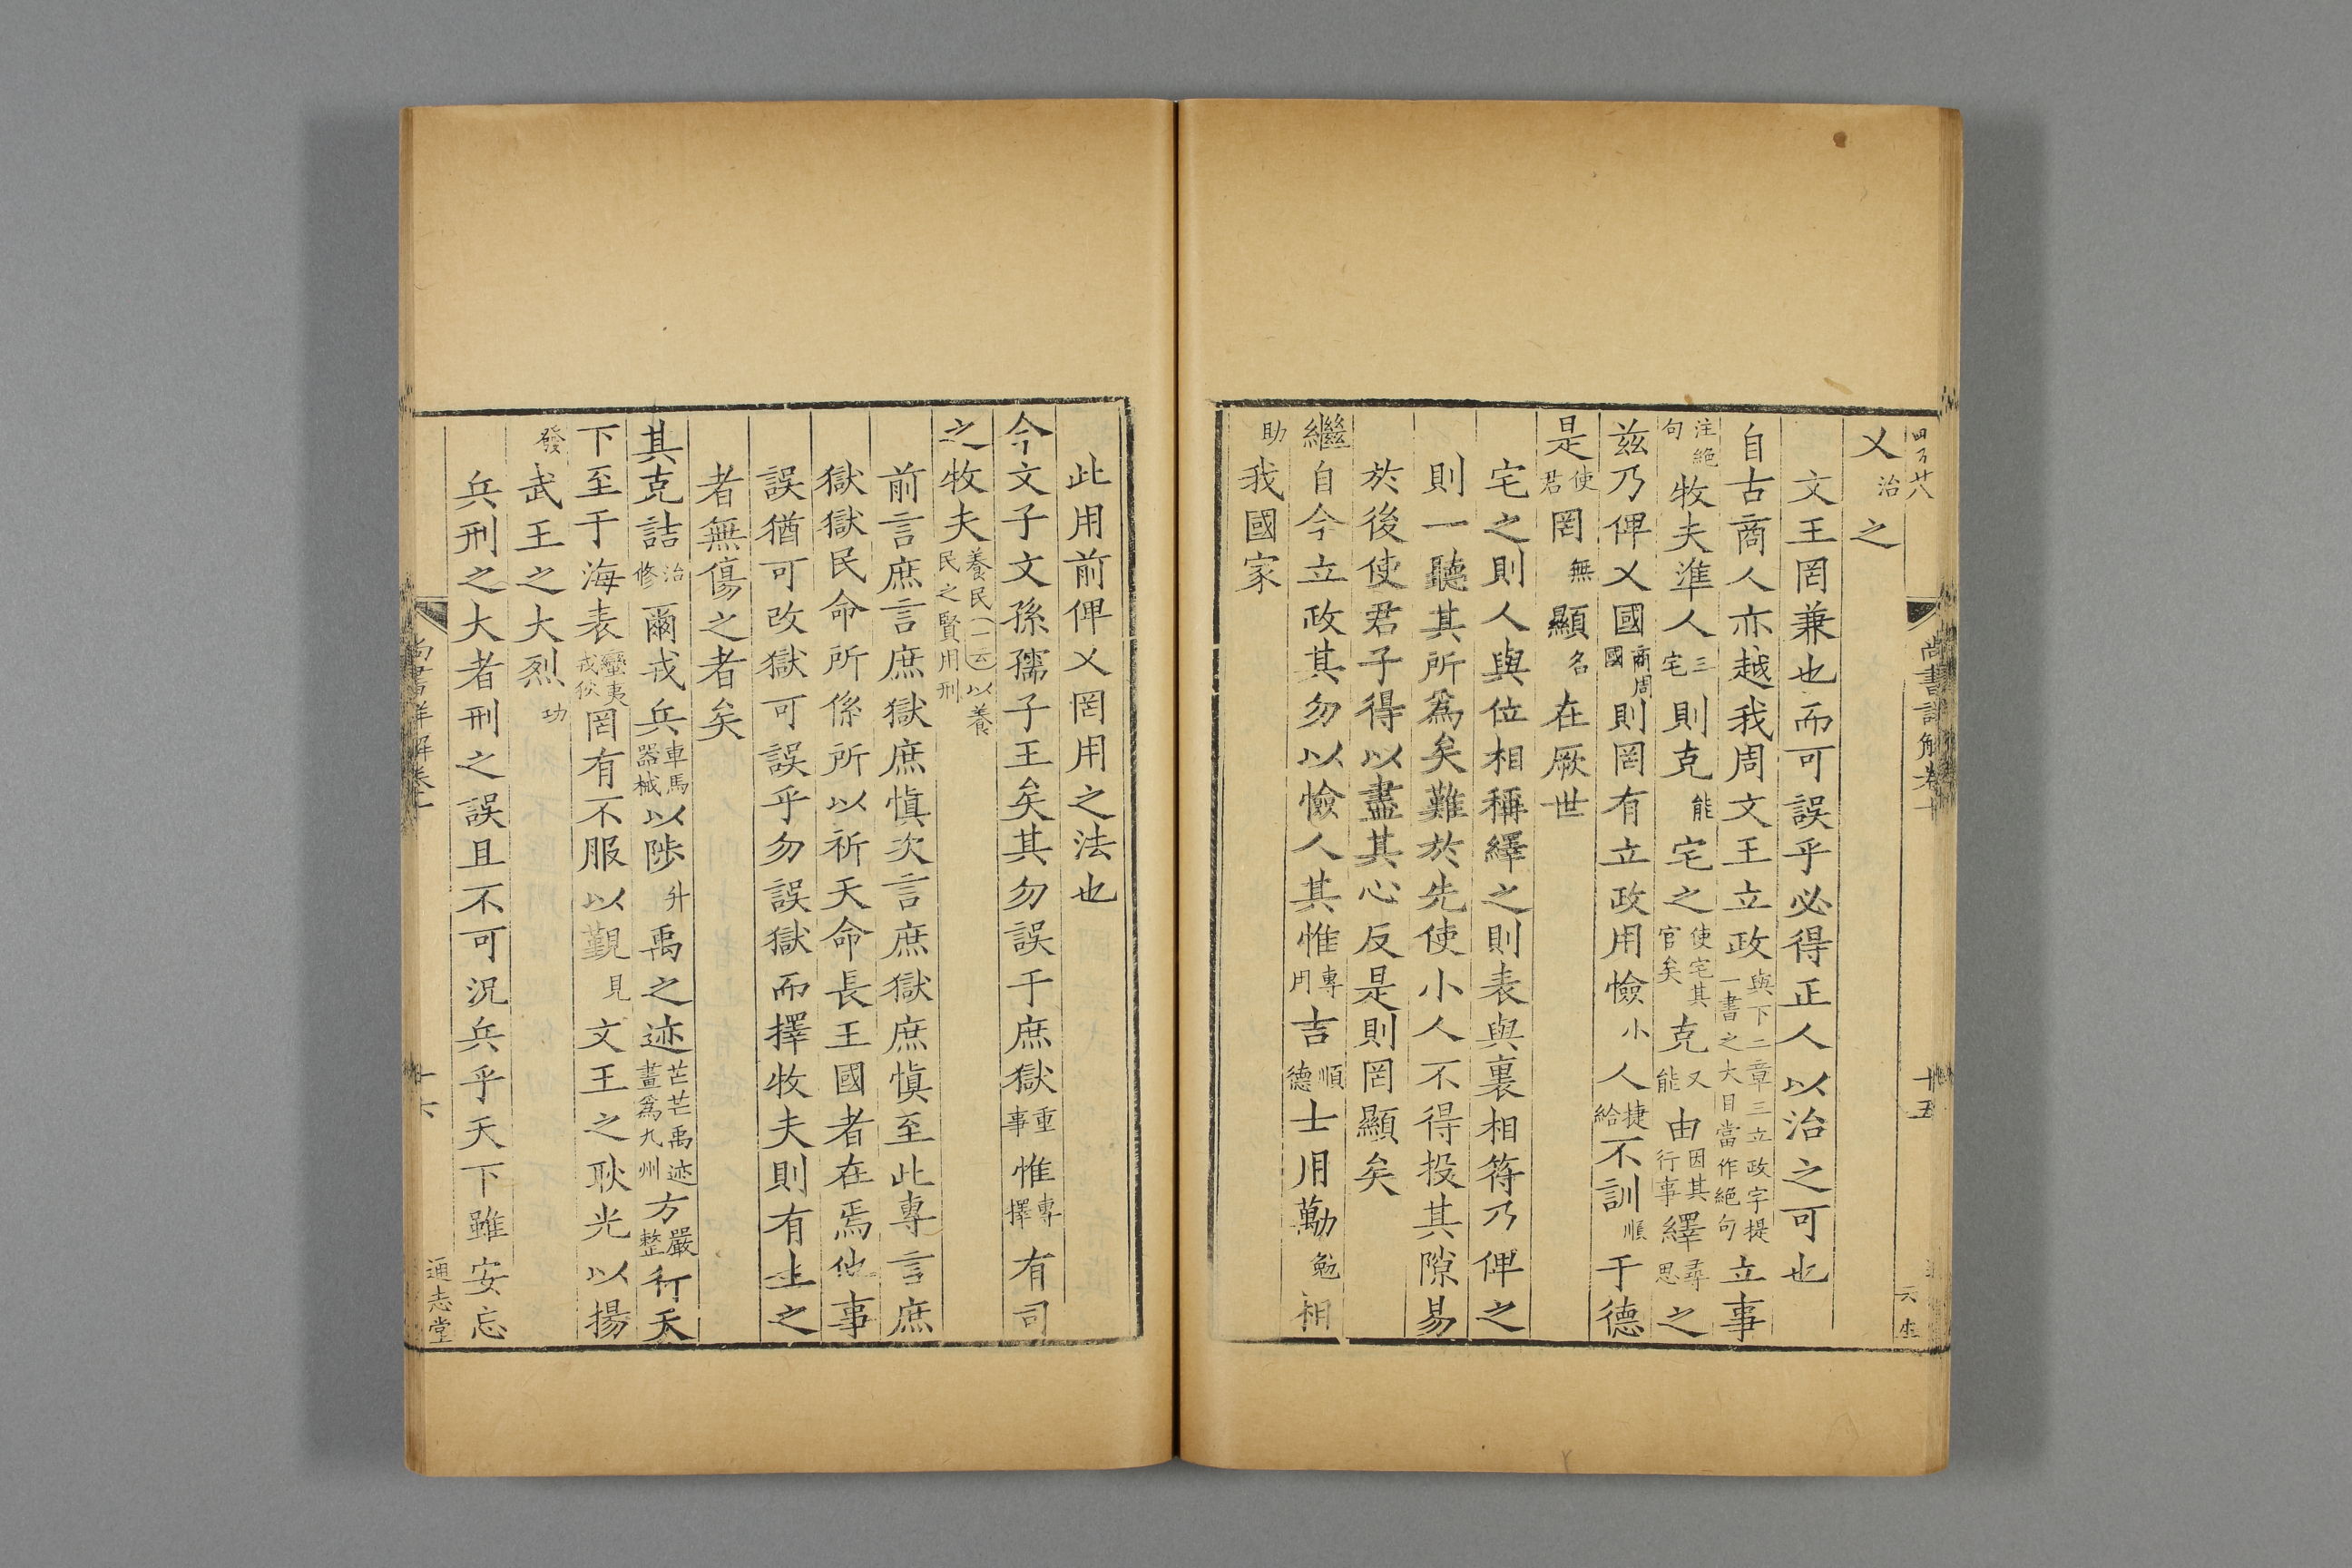 乂治之
文王罔兼也而可誤乎必得正人以治之可也
自古商人亦越我周文王立政與下二章三立政字提一書之大目當作絕句立事
注絕句牧夫準人三宅則克能宅之使宅其官矣克又能由因其行事繹尋思之
茲乃俾乂國商周國則罔有立政用憸小人捷給不訓順于德
是使君罔無顯名在厥世
宅之則人與位相稱繹之則表與裏相符乃俾之
則一聽其所爲矣難於先使小人不得投其隙易
於後使君子得以盡其心反是則罔顯矣
繼自今立政其勿以憸人其惟專用吉順德士用勱勉相
助我國家
尚書詳解卷十
十五
此用前俾乂罔用之法也
今文子文孫孺子王矣其勿誤于庶獄重事惟專擇有司
之牧夫養民(一云)以養民之賢用刑
前言庶言庶獄庶慎次言庶獄庶慎至此專言庶
獄獄民命所係所以祈天命長王國者在焉他事
誤猶可改獄可誤乎勿誤獄而擇牧夫則有土之
者無傷之者矣
其克詰治修爾戎兵車馬器械以陟升禹之迹芒芒禹迹畫爲九州方嚴整行天
下至于海表蠻夷戎狄罔有不服以覲見文王之耿光以揚
發武王之大烈功
兵刑之大者刑之誤且不可況兵乎天下雖安忘
尚書詳解卷十
十六
通志堂